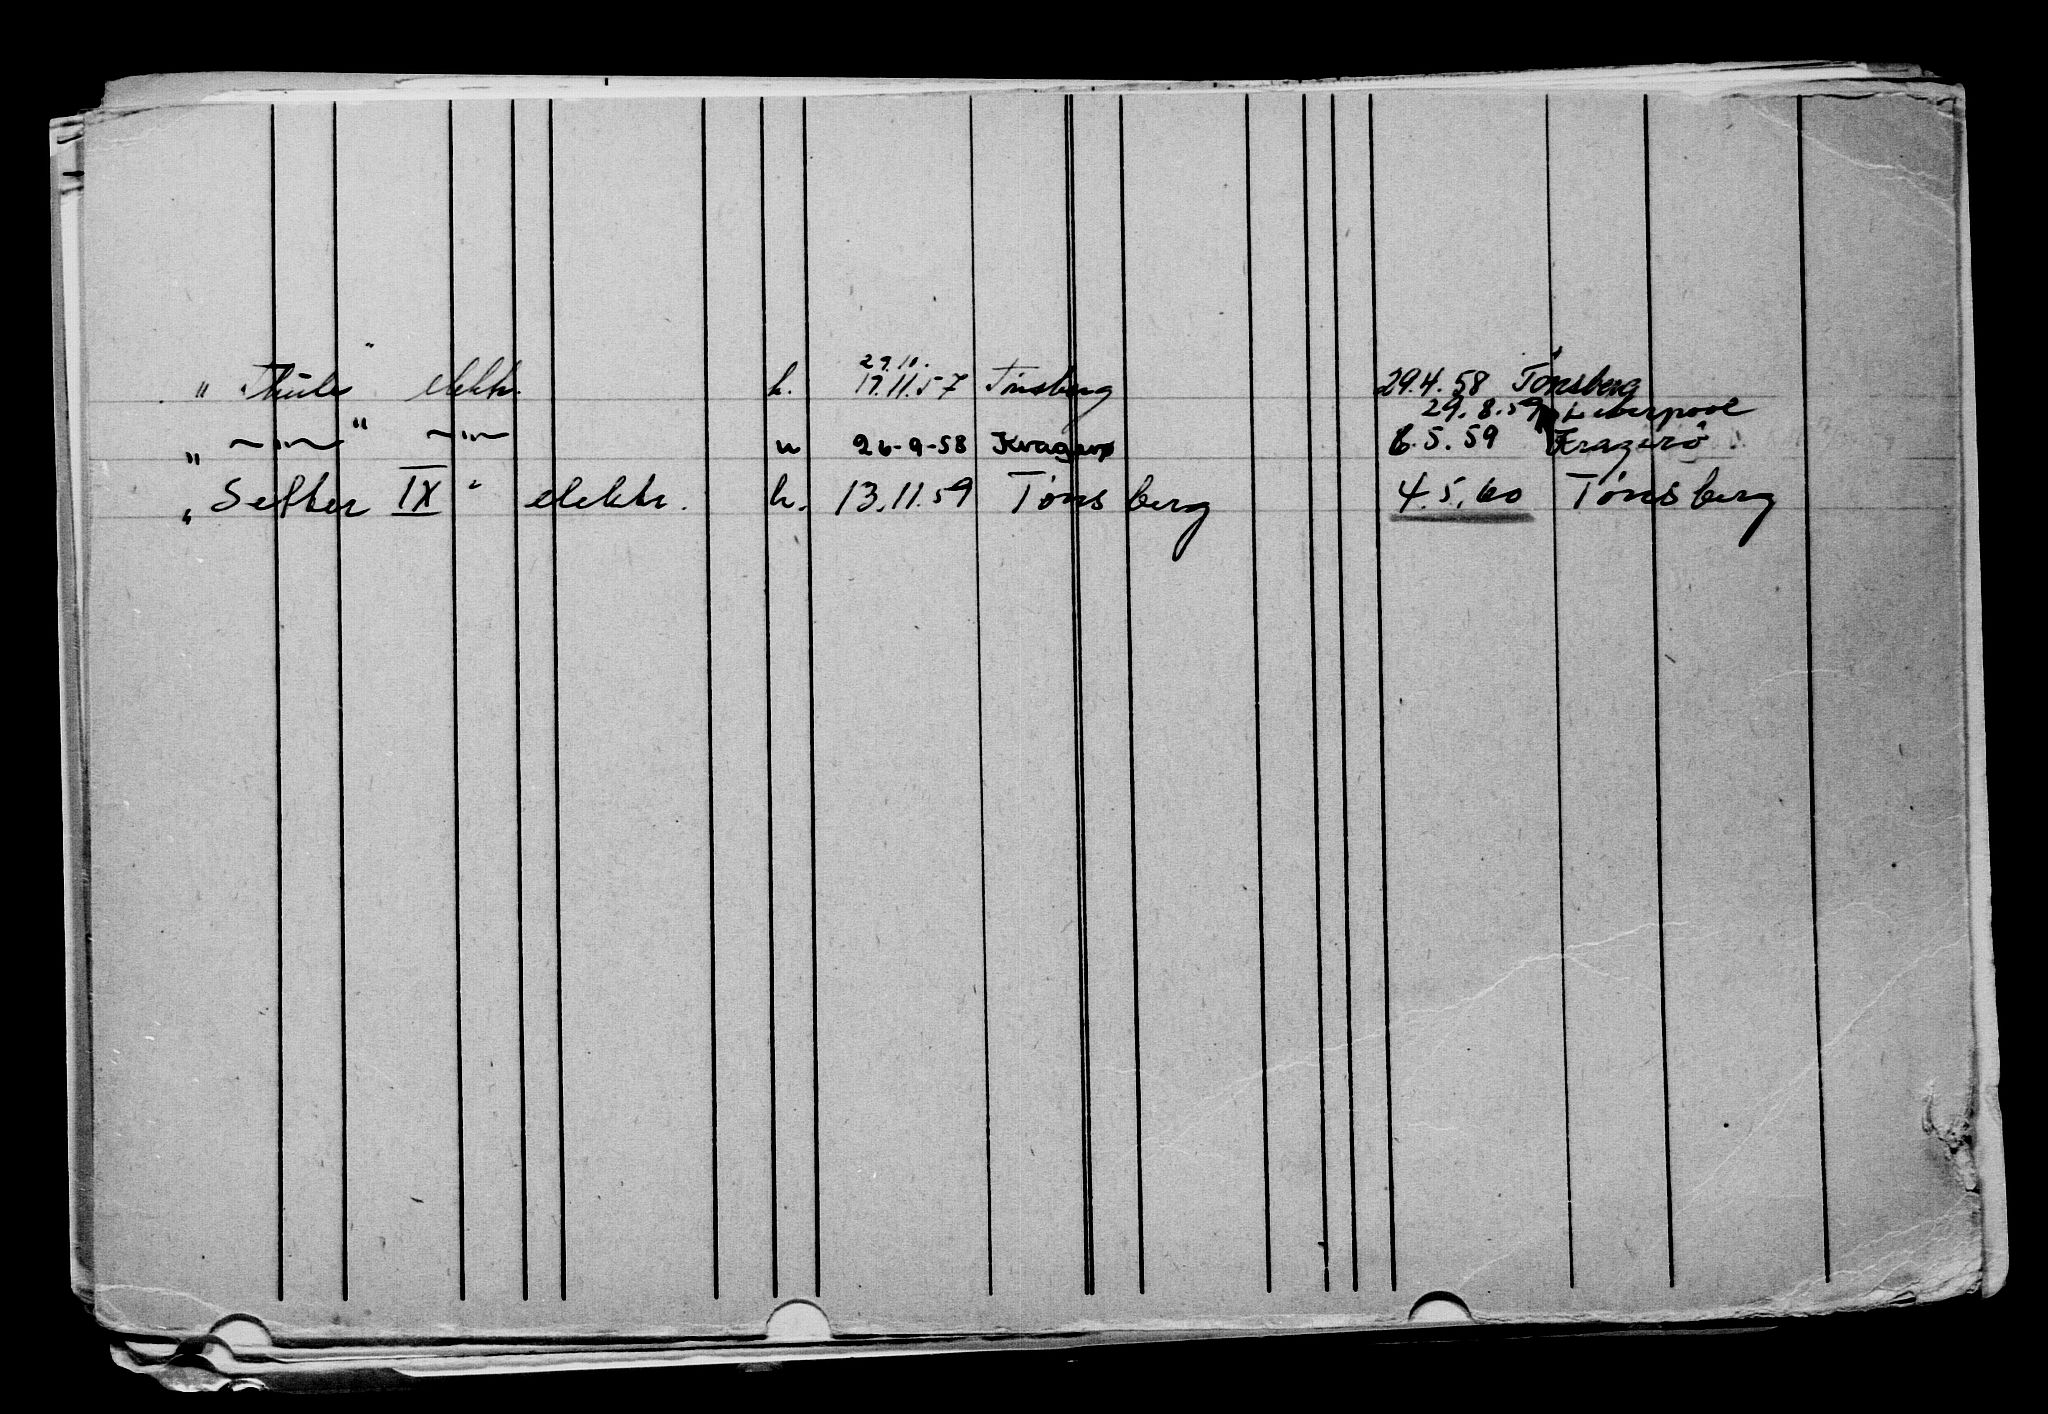 29.10.
" Thule " elektr. h. 17.11.57 Tönsberg 29.4.58 Tönsberg
29.8.59 Liverpool
" —"— " —"— u 26-9-58 Kragerø 6.5.59 Kragerö
" Setter IX " elektr. h. 13.11.59 Tønsberg 4.5.60 Tønsberg